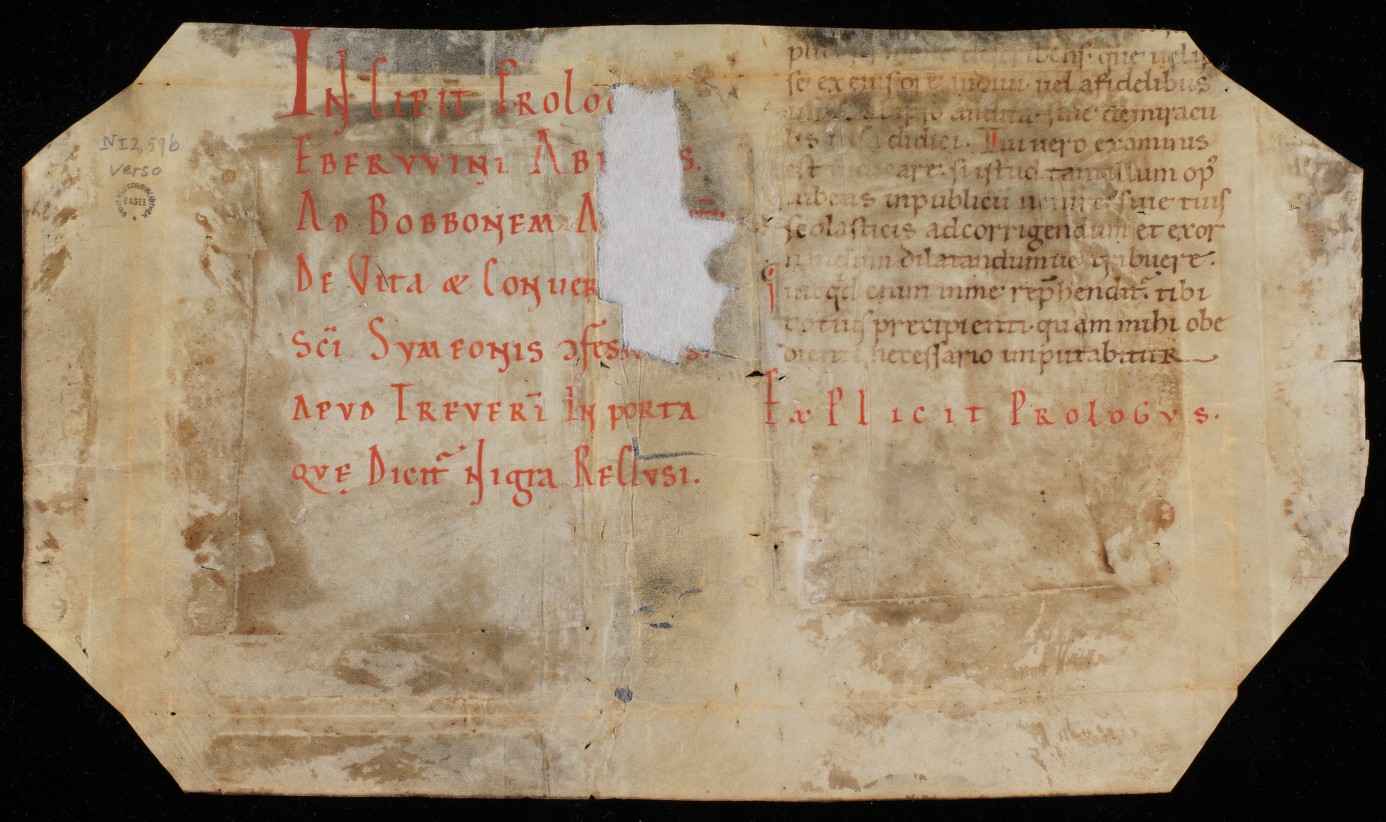 NI2,59b
verso
BASEL
INCIPIT PROLO
EBERVVINI AB S.
AD BOBBONEM A
DE VITA æ CONUER
SCĪ SYMEONIS ɔfes s.
APVD TREVERĪ IN PORTA
QVĘ DICIT̃ NIGRA RECLUSI.
describens. que uel ip
se ex eius ore audiui. uel a fidelibus
audita. siue de miracu
lis didici. Tui uero examinis
est si istud tantillum op᾽
in publicū uenire siue tuis
scolasticis ad corrigendum et exor
nandum dilatandumue tribuere.
enim in me rep̄hendit̃. tibi
potius precipienti. quam mihi obe
dienti necessario imputabitur
EXPLICIT PROLOGVS.